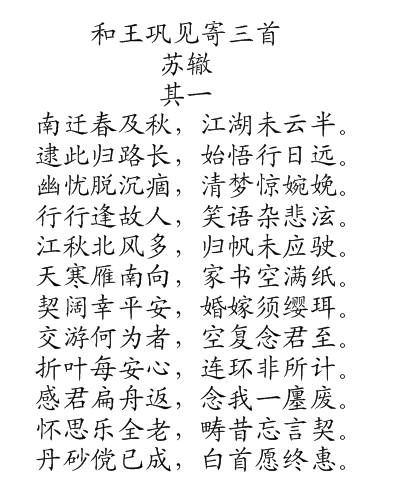 和王巩见寄三首
苏辙
其一
南迁春及秋，江湖未云半。
逮此归路长，始悟行日远。
幽忧脱沉痼，清梦惊婉娩。
行行逢故人，笑语杂悲泫。
江秋北风多，归帆未应驶。
天寒雁南向，家书空满纸。
契阔幸平安，婚嫁须缨珥。
交游何为者，空复念君至。
折叶每安心，连环非所计。
感君扁舟返，念我一廛废。
怀思乐全老，畴昔忘言契。
丹砂傥已成，白首愿终惠。